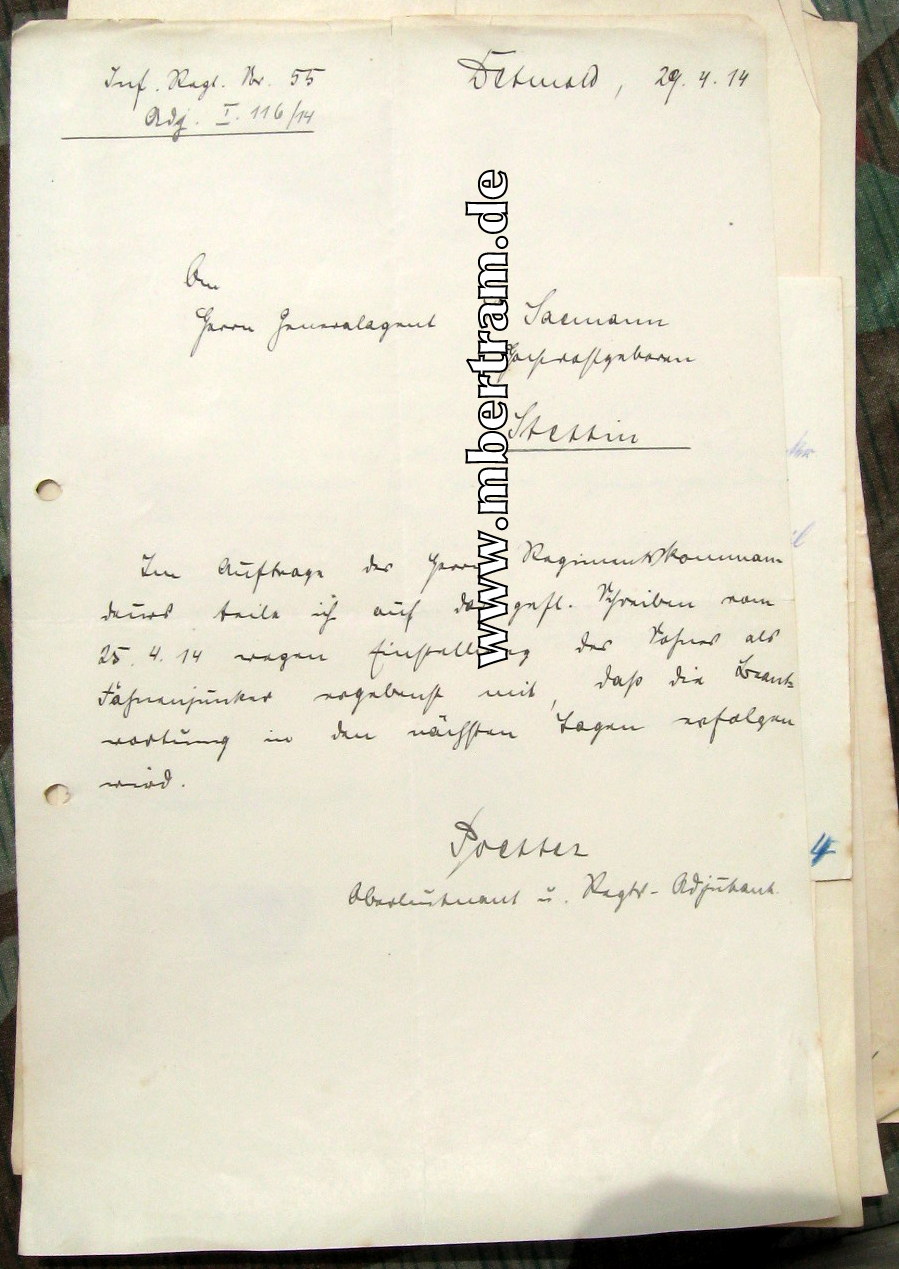 Inf. Regt. Nr. 55
Detmold, 29. 4. 14
Adj. I. 116/14
An
Herrn Generalagent Saemann
Hochwohlgeboren
Stettin
Im Auftrage des Herrn Regimentskomman-
deurs teile ich auf das gefl. Schreiben vom
25. 4. 14 wegen Einstellung des Sohnes als
Fahnenjunker ergebenst mit, daß die Beant-
wortung in den nächsten Tagen erfolgen
wird.
Oberleutnant u. Regts-Adjutant.
www.mbertram.de
4